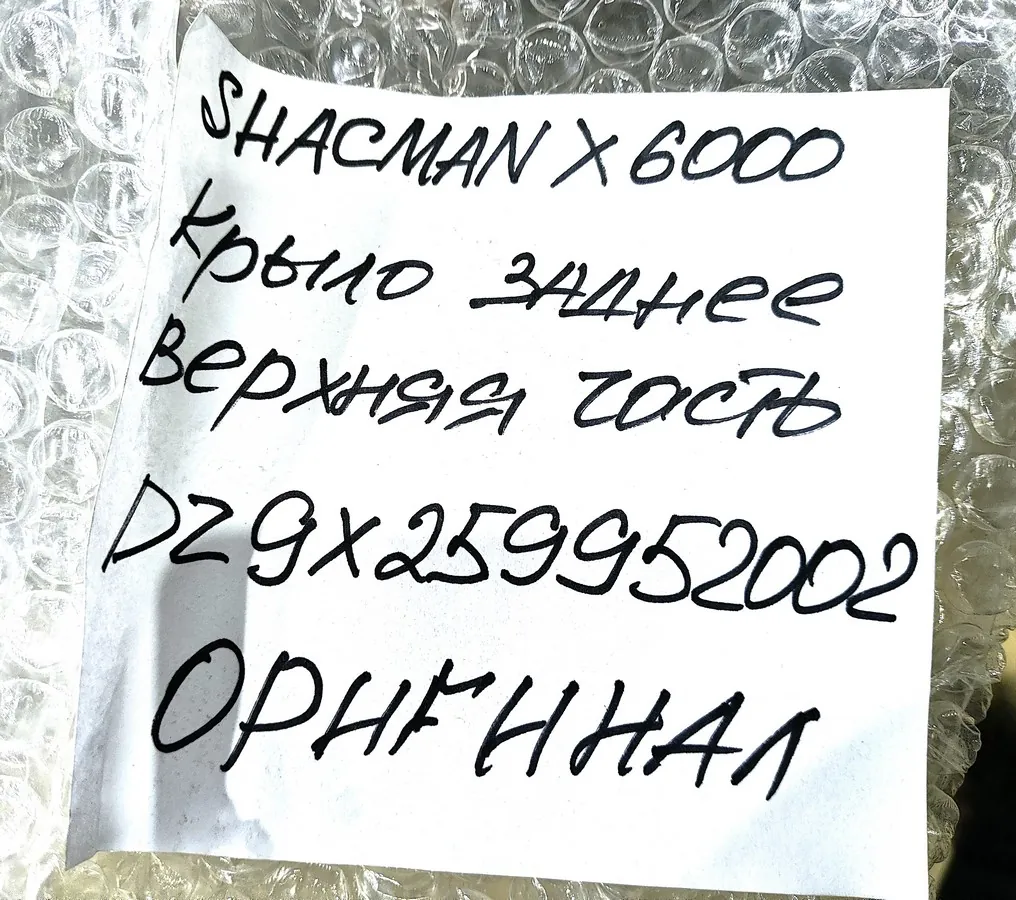 SHACMAN X6000
Крыло заднее
Верхняя часть
DZ9X259952002
ОРИГИНАЛ